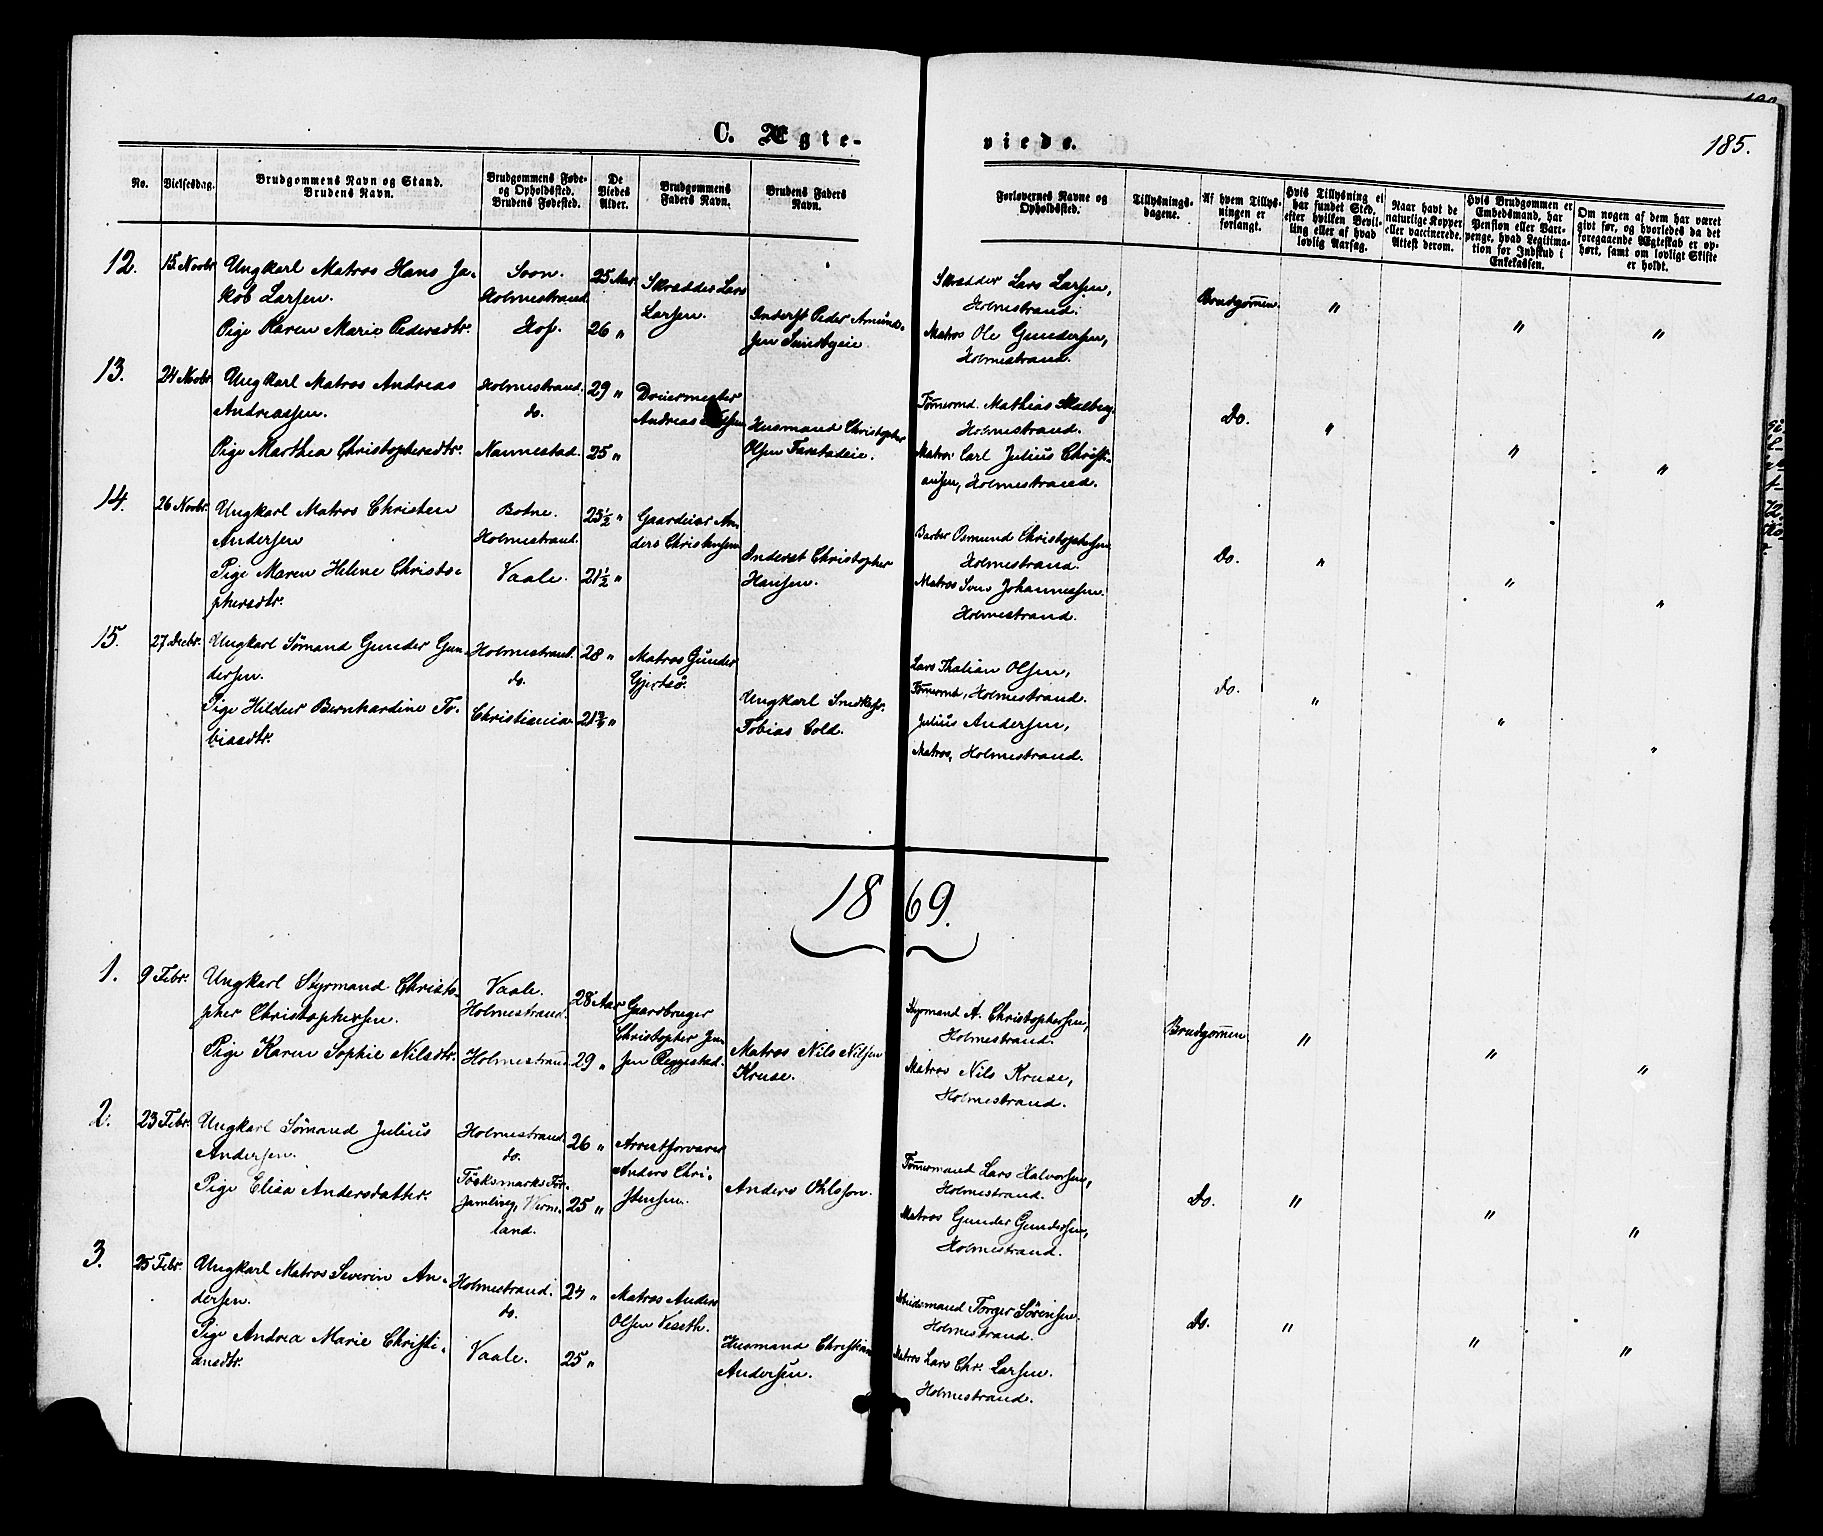 185.
C. Ægte-
viede.
No.
Vielsesdag.
Brudgommens Navn og Stand.
Brudens Navn.
Brudgommens Føde-
og Opholdssted.
Brudens Fødested.
De
Viedes
Alder.
Brudgommens
Faders Navn.
Brudens Faders
Navn.
Forlovernes Navne og
Opholdssted.
Tillysnings-
dagene.
Af hvem Tillys-
ningen er
forlangt.
Hvis Tillysning ei
har fundet Sted,
efter hvilken Bevil-
ling eller af hvad
lovlig Aarsag.
Naar havt de
naturlige Kopper
eller vaccinerede.
Attest derom.
Hvis Brudgommen er
Embedsmand, har
Pension eller Vart-
penge, hvad Legitima-
tion for Indskud i
Enkekassen.
Om nogen af dem har været
givt før, og hvorledes da det
foregaaende Ægteskab er op-
hørt, samt om lovligt Skifte
er holdt.
12.
15 Novbr
Ungkarl Matros Hans Ja-
kob Larsen.
Pige Karen Marie Pedersdtr.
Soon.
Holmestrand.
Hof.
25 Aar
26 "
Skrædder Lars
Larsen.
Inderst Peder Amund-
sen
Skrædder Lars Larsen,
Holmestrand.
Matros Ole Gundersen,
Holmestrand.
Brudgommen.
"
"
"
13.
24 Novbr
Ungkarl Matros Andreas
Andreassen.
Pige Marthea Christophersdtr.
Holmestrand.
do.
Nannestad.
29 "
25 "
Dreiermester
Andreas
Husmand Christopher
Olsen
Tømermd. Mathias
Holmestrand.
Matros Carl Julius Christi-
ansen, Holmestrand.
Do.
"
"
"
14.
26 Novbr.
Ungkarl Matros Christen
Andersen
Pige Maren Helene Christo-
phersdtr.
Botne.
Holmestrand.
Vaale.
25½ "
21½ "
Gaardeier An-
ders Christensen
Inderst Christopher
Hansen.
Barber Osmund Christophersen
Holmestrand.
Matros Johannessen.
Holmestrand.
Do.
"
"
"
15.
27 Decbr.
Ungkarl Sømand Gunder Gun-
dersen.
Pige Hildur Bernhardine To-
biasdtr.
Holmestrand.
do.
Christiania
28 "
21 "
Matros Gunder
Gjertsø.
Ungkarl
Tobias Cold.
Lars Thalian Olsen,
Tømermd, Holmestrand.
Julius Andersen,
Matros, Holmestrand.
Do.
"
"
"
1869.
1.
9 Febr.
Ungkarl Styrmand Christo-
pher Christophersen.
Pige Karen Sophie Nilsdtr.
Vaale.
Holmestrand.
Holmestrand
28 Aar
29 "
Gaardbruger
Christopher Jen-
sen Reggestad.
Matros Nils Nilsen
Kruse.
Styrmand A. Christophersen,
Holmestrand.
Matros Nils Kruse,
Holmestrand.
Brudgommen
"
"
"
2.
23 Febr.
Ungkarl Sømand Julius
Andersen.
Pige Elisa Andersdatter.
Holmestrand.
do.
Töcksmarks För-
samling, Verm-
land.
26 "
25 "
Arrestforvarer
Anders Chri-
stensen.
Anders Ohlsson.
Tømmermand Lars Halvorsen,
Holmestrand.
Matros Gunder Gundersen,
Holmestrand.
Do.
"
"
"
3.
25 Febr.
Ungkarl Matros Severin An-
dersen.
Pige Andrea Marie Christi-
ansdtr.
Holmestrand.
do.
Vaale.
24 "
25 "
Matros Anders
Olsen Veseth.
Husmand Christian
Andersen.
Arbeidsmand Torger Sørensen.
Holmestrand.
Matros Lars Chr. Larsen.
Holmestrand.
Do.
"
"
"